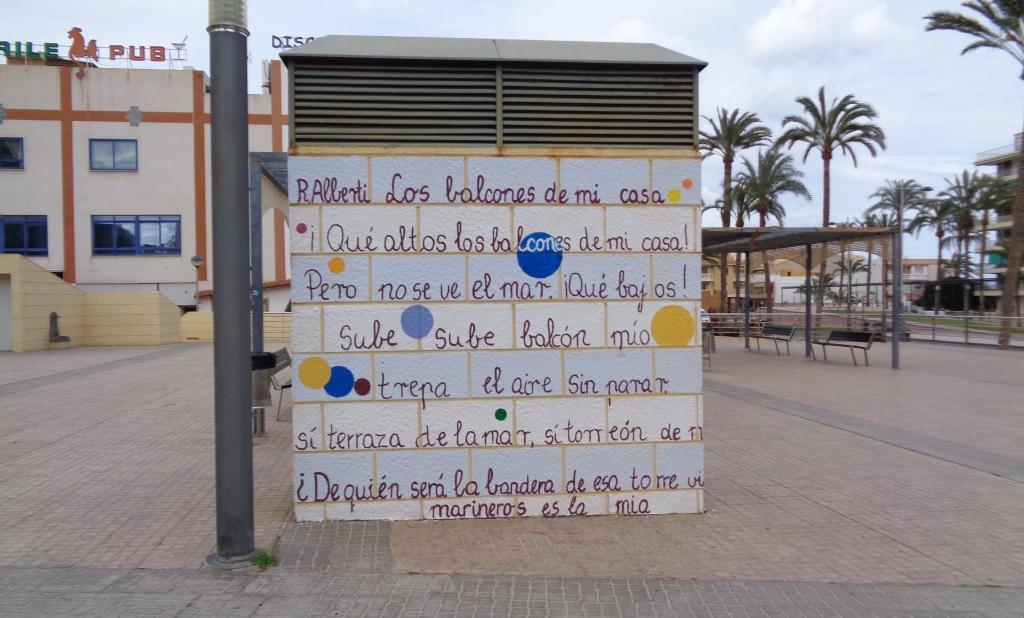 AILE PUB
DISC
R Alberti Los balcones de mi casa
¡Qué altos los balcones de mi casa!
Pero no se ve el mar. ¡Qué bajos!
Sube sube balcón mío
trepa el aire sin parar.
sí terraza de la mar, sí torreón de
¿De quién será la bandera de esa torre vi
marineros es la mia